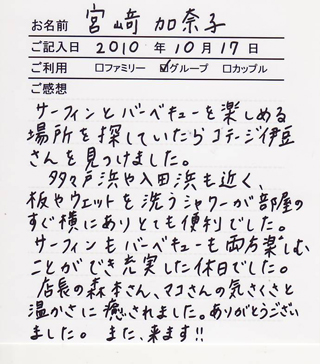 お名前 宮﨑 加奈子
ご記入日 2010 年 10 月 17 日
ご利用 □ファミリー ☑グループ □カップル
ご感想
サーフィンとバーベキューを楽しめる
場所を探していたらコテージ伊豆
さんを見つけました。
多々戸浜や入田浜も近く、
板やウェットを洗うシャワーが部屋の
すぐ横にありとても便利でした。
サーフィンもバーベキューも両方楽しむ
ことができ充実した休日でした。
店長の森本さん、マコさんの気さくさと
温かさに癒されました。ありがとうござい
ました。また、来ます!!